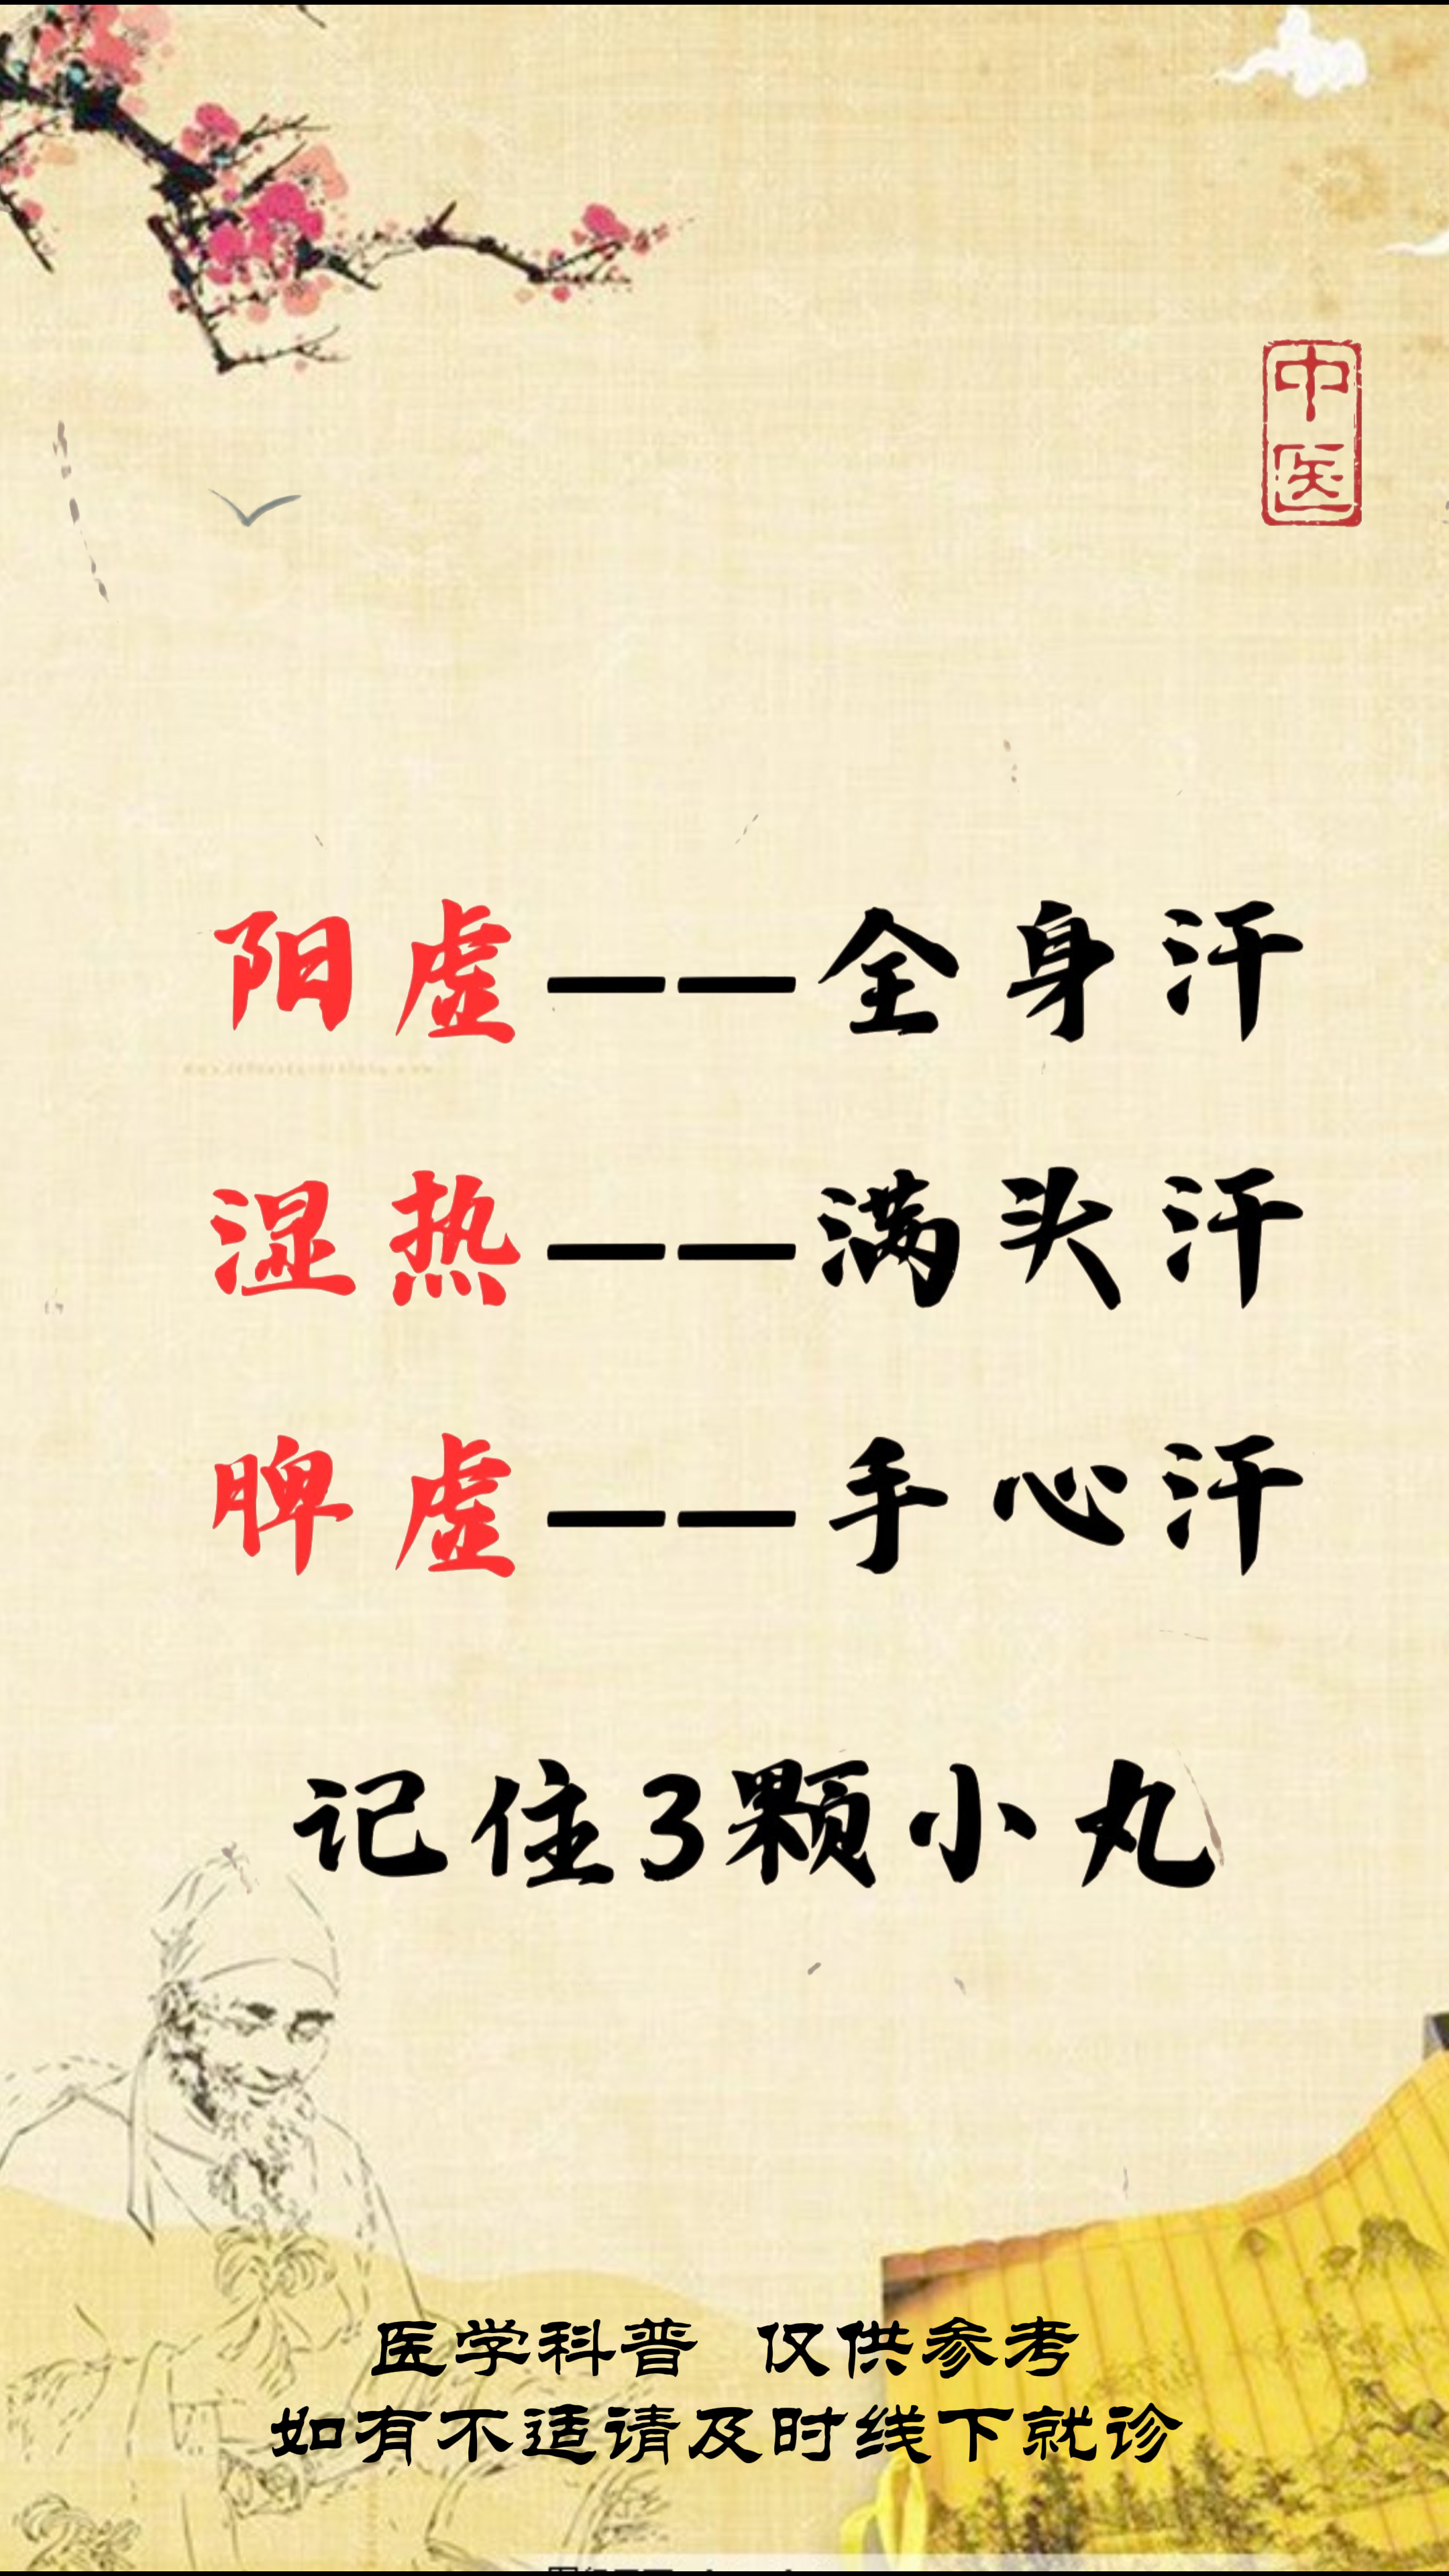 中医
阳虚——全身汗
湿热——满头汗
脾虚——手心汗
记住3颗小丸
医学科普 仅供参考
如有不适请及时线下就诊